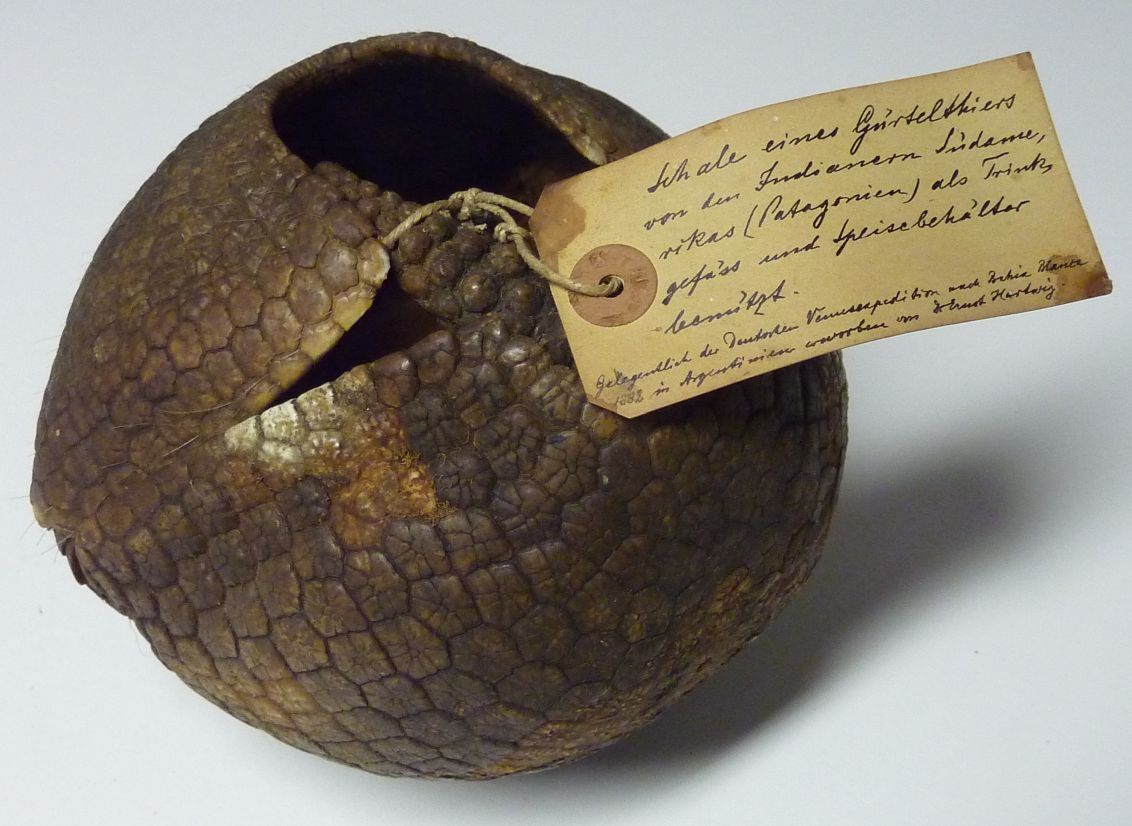 Schale eines Gürtelthiers
von den Indianern Südame,
rikas (Patagonien) als Trink,
gefäss und Speisebehälter
benützt.
Gelegentlich der Deutschen Venusexpedition nach Bahia Blanca
1882 in Argentinien erworben von Dr Ernst Hartwig.